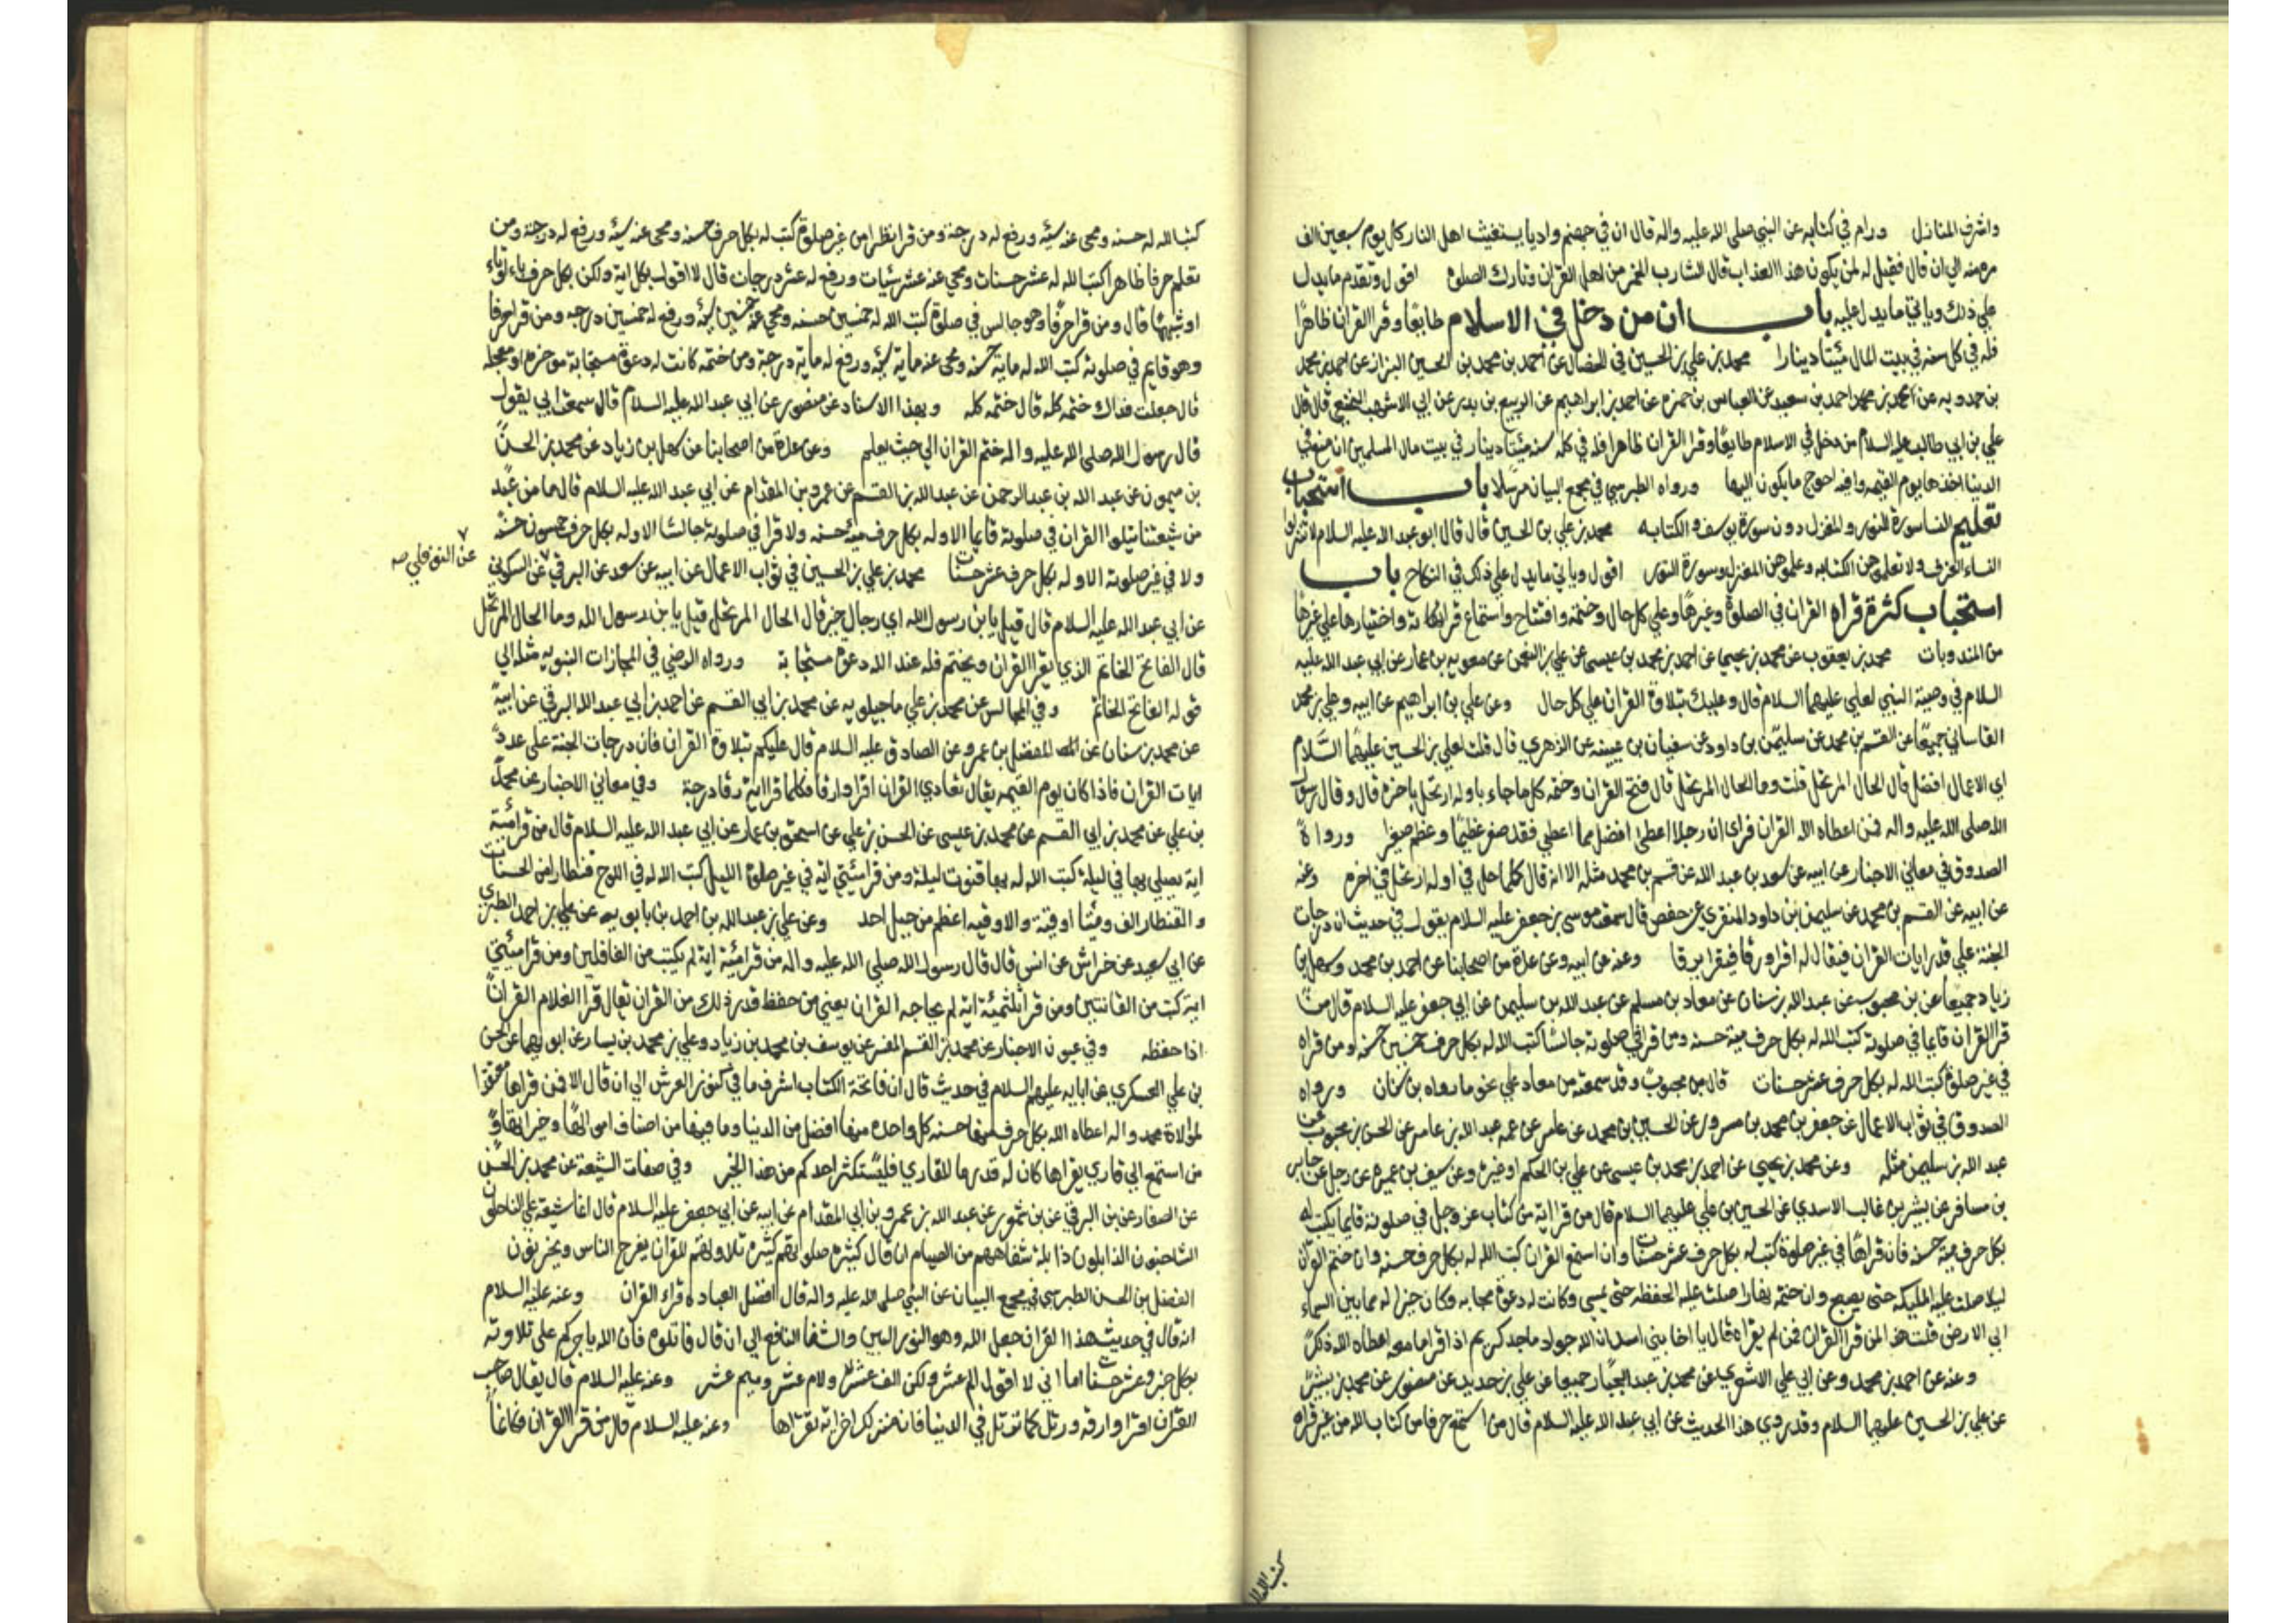 واشرف المنازل ورام في كتابه عن النبي صلى الله عليه واله قال ان في جهنم واديا يستغيث اهل النار كل يوم سبعين الف
مره منه الي ان قال فقيل له لمن يكون هذا العذاب قال لشارب الخمر من اهل القران وتارك الصلوة اقول وتقدم ما يدل
علي ذلك وياتي ما يدل عليه باب ان من دخل في الاسلام طايعا وقرا القران ظاهرا
فله في كل سنه في بيت المال مئتا دينارا محمد بن علي بن الحسين في الخصال عن احمد بن محمد بن الحسين البزاز عن احمد بن محمد
بن حمدويه عن احمد بن محمد احمد بن سعيد عن العباس بن حمزه عن احمد بن ابراهيم عن الربيع بن بدر عن ابي الاشهب النخعي قال قال
علي بن ابي طالب عليه السلام من دخل في الاسلام طايعا وقرا القران ظاهرا فله في كل سنه مئتا دينار في بيت مال المسلمين ان منع في
الدنيا اخذها يوم القيمه وافيه احوج ما يكون اليها ورواه الطبرسي في مجمع البيان مرسلا باب استحباب
تعليم النسا سورة النور والمغزل دون سورة يوسف والكتابه محمد بن علي بن الحسين قال قال ابو عبد الله عليه السلام لا تنزلوا
النساء الغرف ولا تعلموهن الكتابه وعلموهن المغزل وسورة النور اقول وياتي ما يدل علي ذلك في النكاح باب
استحباب كثرة قراة القران في الصلوة وغيرها وعلي كل حال وختمه وافتتاحه واستماع قراته واختيارها علي غيرها
من المندوبات محمد بن يعقوب عن محمد بن يحيى عن احمد بن محمد بن عيسى عن علي بن النعمن عن معويه بن عمار عن ابي عبد الله عليه
السلام في وصية النبي لعلي عليهما السلام قال وعليك بتلاوة القران علي كل حال وعن علي بن ابراهيم عن ابيه وعلي بن محمد
القاساني جميعا عن القسم بن محمد عن سليمن بن داود عن سفيان بن عيينه عن الزهري قال قلت لعلي بن الحسين عليهما السلام
اي الاعمال افضل قال الحال المرتحل قلت وما الحال المرتحل قال فتح القران وختمه كل ما جاء باوله ارتحل باخره قال وقال رسول
الله صلى الله عليه واله من اعطاه الله القران فراي ان رجلا اعطى افضل مما اعطي فقد صغر عظيما وعظم صغيرا ورواه
الصدوق في معاني الاخبار عن ابيه عن سعد بن عبد الله عن قسم بن محمد مثله الا انه قال كلما حل في اوله ارتحل في اخره وعنه
عن ابيه عن القسم بن محمد عن سليمن بن داود المنقري عن حفص قال سمعت موسى بن جعفر عليه السلام يقول في حديث ان درجات
الجنة علي قدر ايات القران فيقال له اقرا وارقا فيقرا يرقا وعنه عن ابيه وعن عدة من اصحابنا عن احمد بن محمد وسهل بن
زياد جميعا عن بن محبوب عن عبد الله بن سنان عن معاذ بن مسلم عن عبد الله بن سليمن عن ابي جعفر عليه السلام قال من
قرا القران قايما في صلوته كتب الله له بكل حرف مئة حسنه ومن قرا في صلوته جالسا كتب الله له بكل حرف خمسين حسنه ومن قراه
في غير صلوة كتب الله له بكل حرف عشر حسنات قال بن محبوب وقد سمعته من معاذ علي نحو ما رواه بن سنان ورواه
الصدوق في ثواب الاعمال عن جعفر بن محمد بن مسرور عن الحسين بن محمد بن عامر عن عمه عبد الله بن عامر عن الحسن بن محبوب عن
عبد الله بن سليمن مثله وعن محمد بن يحيى عن احمد بن محمد بن عيسى عن علي بن الحكم او غيره وعن سيف بن عميره عن رجل عن جابر
بن مسافر عن بشر بن غالب الاسدي عن الحسين بن علي عليهما السلام قال من قرا اية من كتاب عز وجل في صلوته قايما يكتب له
بكل حرف مئة حسنه فان قراها في غير صلوة كتب له بكل حرف عشر حسنات وان استمع القران كتب الله له بكل حرف حسنه وان ختم القران
ليلا صلت عليه المليكه حتى يصبح وان ختمه نهارا صلت عليه الحفظه حتى يمسي وكانت له دعوة مجابه وكان خيرا له مما بين السماء
الي الارض قلت هذا لمن قرا القران فمن لم يقراه قال يا اخا بني اسد ان الله جواد ماجد كريم اذا قرا ما معه اعطاه الله ذلك
وعنه عن احمد بن محمد وعن ابي علي الاشعري عن محمد بن عبد الجبار جميعا عن علي بن حديد عن منصور عن محمد بن بشير
عن علي بن الحسين عليهما السلام وقد روي هذا الحديث عن ابي عبد الله عليه السلام قال من استمع حرفا من كتاب الله من غير قراة
كتب الله
كتب الله له حسنه ومحى عنه سيئه ورفع له درجة ومن قرا نظرا من غير صلوة كتب له بكل حرف حسنه ومحى عنه سيئه ورفع له درجة ومن
تعلم حرفا ظاهرا كتب الله له عشر حسنات ومحي عنه عشر سيئات ورفع له عشر درجات قال لا اقول بكل اية ولكن بكل حرف باء او تاء
او شبهها قال ومن قرا حرفا وهو جالس في صلوة كتب الله له خمسين حسنه ومحي عنه خمسين سيئه ورفع له خمسين درجه ومن قرا حرفا
وهو قايم في صلوته كتب الله له ماية حسنه ومحى عنه ماية سيئه ورفع له ماية درجة ومن ختمه كانت له دعوة مستجابة موخره او معجله
قال جعلت فداك ختمه كله قال ختمه كله وبهذا الاسناد عن منصور عن ابي عبد الله عليه السلام قال سمعت ابي يقول
قال رسول الله صلى الله عليه واله ختم القران الي حيث يعلم وعن عدة من اصحابنا عن سهل بن زياد عن محمد بن الحسن
بن ميمون عن عبد الله بن عبد الرحمن عن عبد الله بن القسم عن عمرو بن المقدام عن ابي عبد الله عليه السلام قال ما من عبد
من شيعتنا يتلوا القران في صلوته قايما الا وله بكل حرف مئة حسنه ولا قرا في صلوته جالسا الا وله بكل حرف خمسون حسنه
ولا في غير صلوته الا وله بكل حرف عشر حسنات محمد بن علي بن الحسين في ثواب الاعمال عن ابيه عن سعد عن البرقي عن السكوني
عن النوفلي صه
عن ابي عبد الله عليه السلام قال قيل يا بن رسول الله اي رجال خير قال الحال المرتحل قيل يا بن رسول الله وما الحال المرتحل
قال الفاتح الخاتم الذي يقرا القران ويختم فله عند الله دعوة مستجابة ورواه الرضي في المجازات النبويه مثله الي
قوله الفاتح الخاتم وفي المجالس عن محمد بن علي ماجيلويه عن محمد بن ابي القسم عن احمد بن ابي عبد الله البرقي عن ابيه
عن محمد بن سنان عن المفضل بن عمرو عن الصادق عليه السلام قال عليكم بتلاوة القران فان درجات الجنة على عدد
ايات القران فاذا كان يوم القيمه يقال لقاري القران اقرا وارقا فكلما قرا اية رقا درجة وفي معاني الاخبار عن محمد
بن علي عن محمد بن ابي القسم عن محمد بن عيسى عن الحسن بن علي عن اسحق بن عمار عن ابي عبد الله عليه السلام قال من قرا مئة
اية يصلي بها في ليلة كتب الله له بها قنوت ليلة ومن قرا مئتي اية في غير صلوة الليل كتب الله له في اللوح قنطارا من الحسنات
والقنطار الف ومئتا اوقية والاوقيه اعظم من جبل احد وعن علي بن عبد الله بن احمد بن بابويه عن علي بن احمد الطبري
عن ابي سعيد عن خراش عن انس قال قال رسول الله صلي الله عليه واله من قرا مئة اية لم يكتب من الغافلين ومن قرا مئتي
اية كتب من القانتين ومن قرا ثلثمئة اية لم يحاجه القران يعني من حفظ قدر ذلك من القران يقال قرا الغلام القران
اذا حفظه وفي عيون الاخبار عن محمد بن القسم المفسر عن يوسف بن محمد بن زياد وعلي بن محمد بن يسار عن ابويهما عن الحسن
بن علي العسكري عن ابايه عليهم السلام في حديث قال ان فاتحة الكتاب اشرف ما في كنوز العرش الي ان قال الا فمن قراها معتقدا
لموالاة محمد واله اعطاه الله بكل حرف منها حسنه كل واحده منها افضل من الدنيا وما فيها من اصناف اموالها وخيراتها و
من استمع الي قاري يقراها كان له قدر ما للقاري فليستكثر احدكم من هذا الخير وفي صفات الشيعة عن محمد بن الحسن
عن الصفار عن بن البرقي عن بن شمون عن عبد الله بن عمرو بن ابي المقدام عن ابيه عن ابي جعفر عليه السلام قال انما شيعة علي الناحلون
الشاحبون الذابلون ذابلة شفاههم من الصيام ان قال كثيرة صلوتهم كثيرة تلاوتهم للقران يفرح الناس ويحزنون
الفضل بن الحسن الطبرسي في مجمع البيان عن النبي صلى الله عليه واله قال افضل العباده قراءة القران وعنه عليه السلام
انه قال في حديث هذا القران حبل الله وهو النور المبين والشفا النافع الي ان قال فاتلوه فان الله ياجركم على تلاوته
بكل حرف عشر حسنات اما اني لا اقول الم عشر ولكن الف عشر ولام عشر وميم عشر وعنه عليه السلام قال يقال لصاحب
القران اقرا وارقه ورتل كما ترتل في الدنيا فان منزلك اخر اية تقراها وعنه عليه السلام قال من قرا القران فكانما